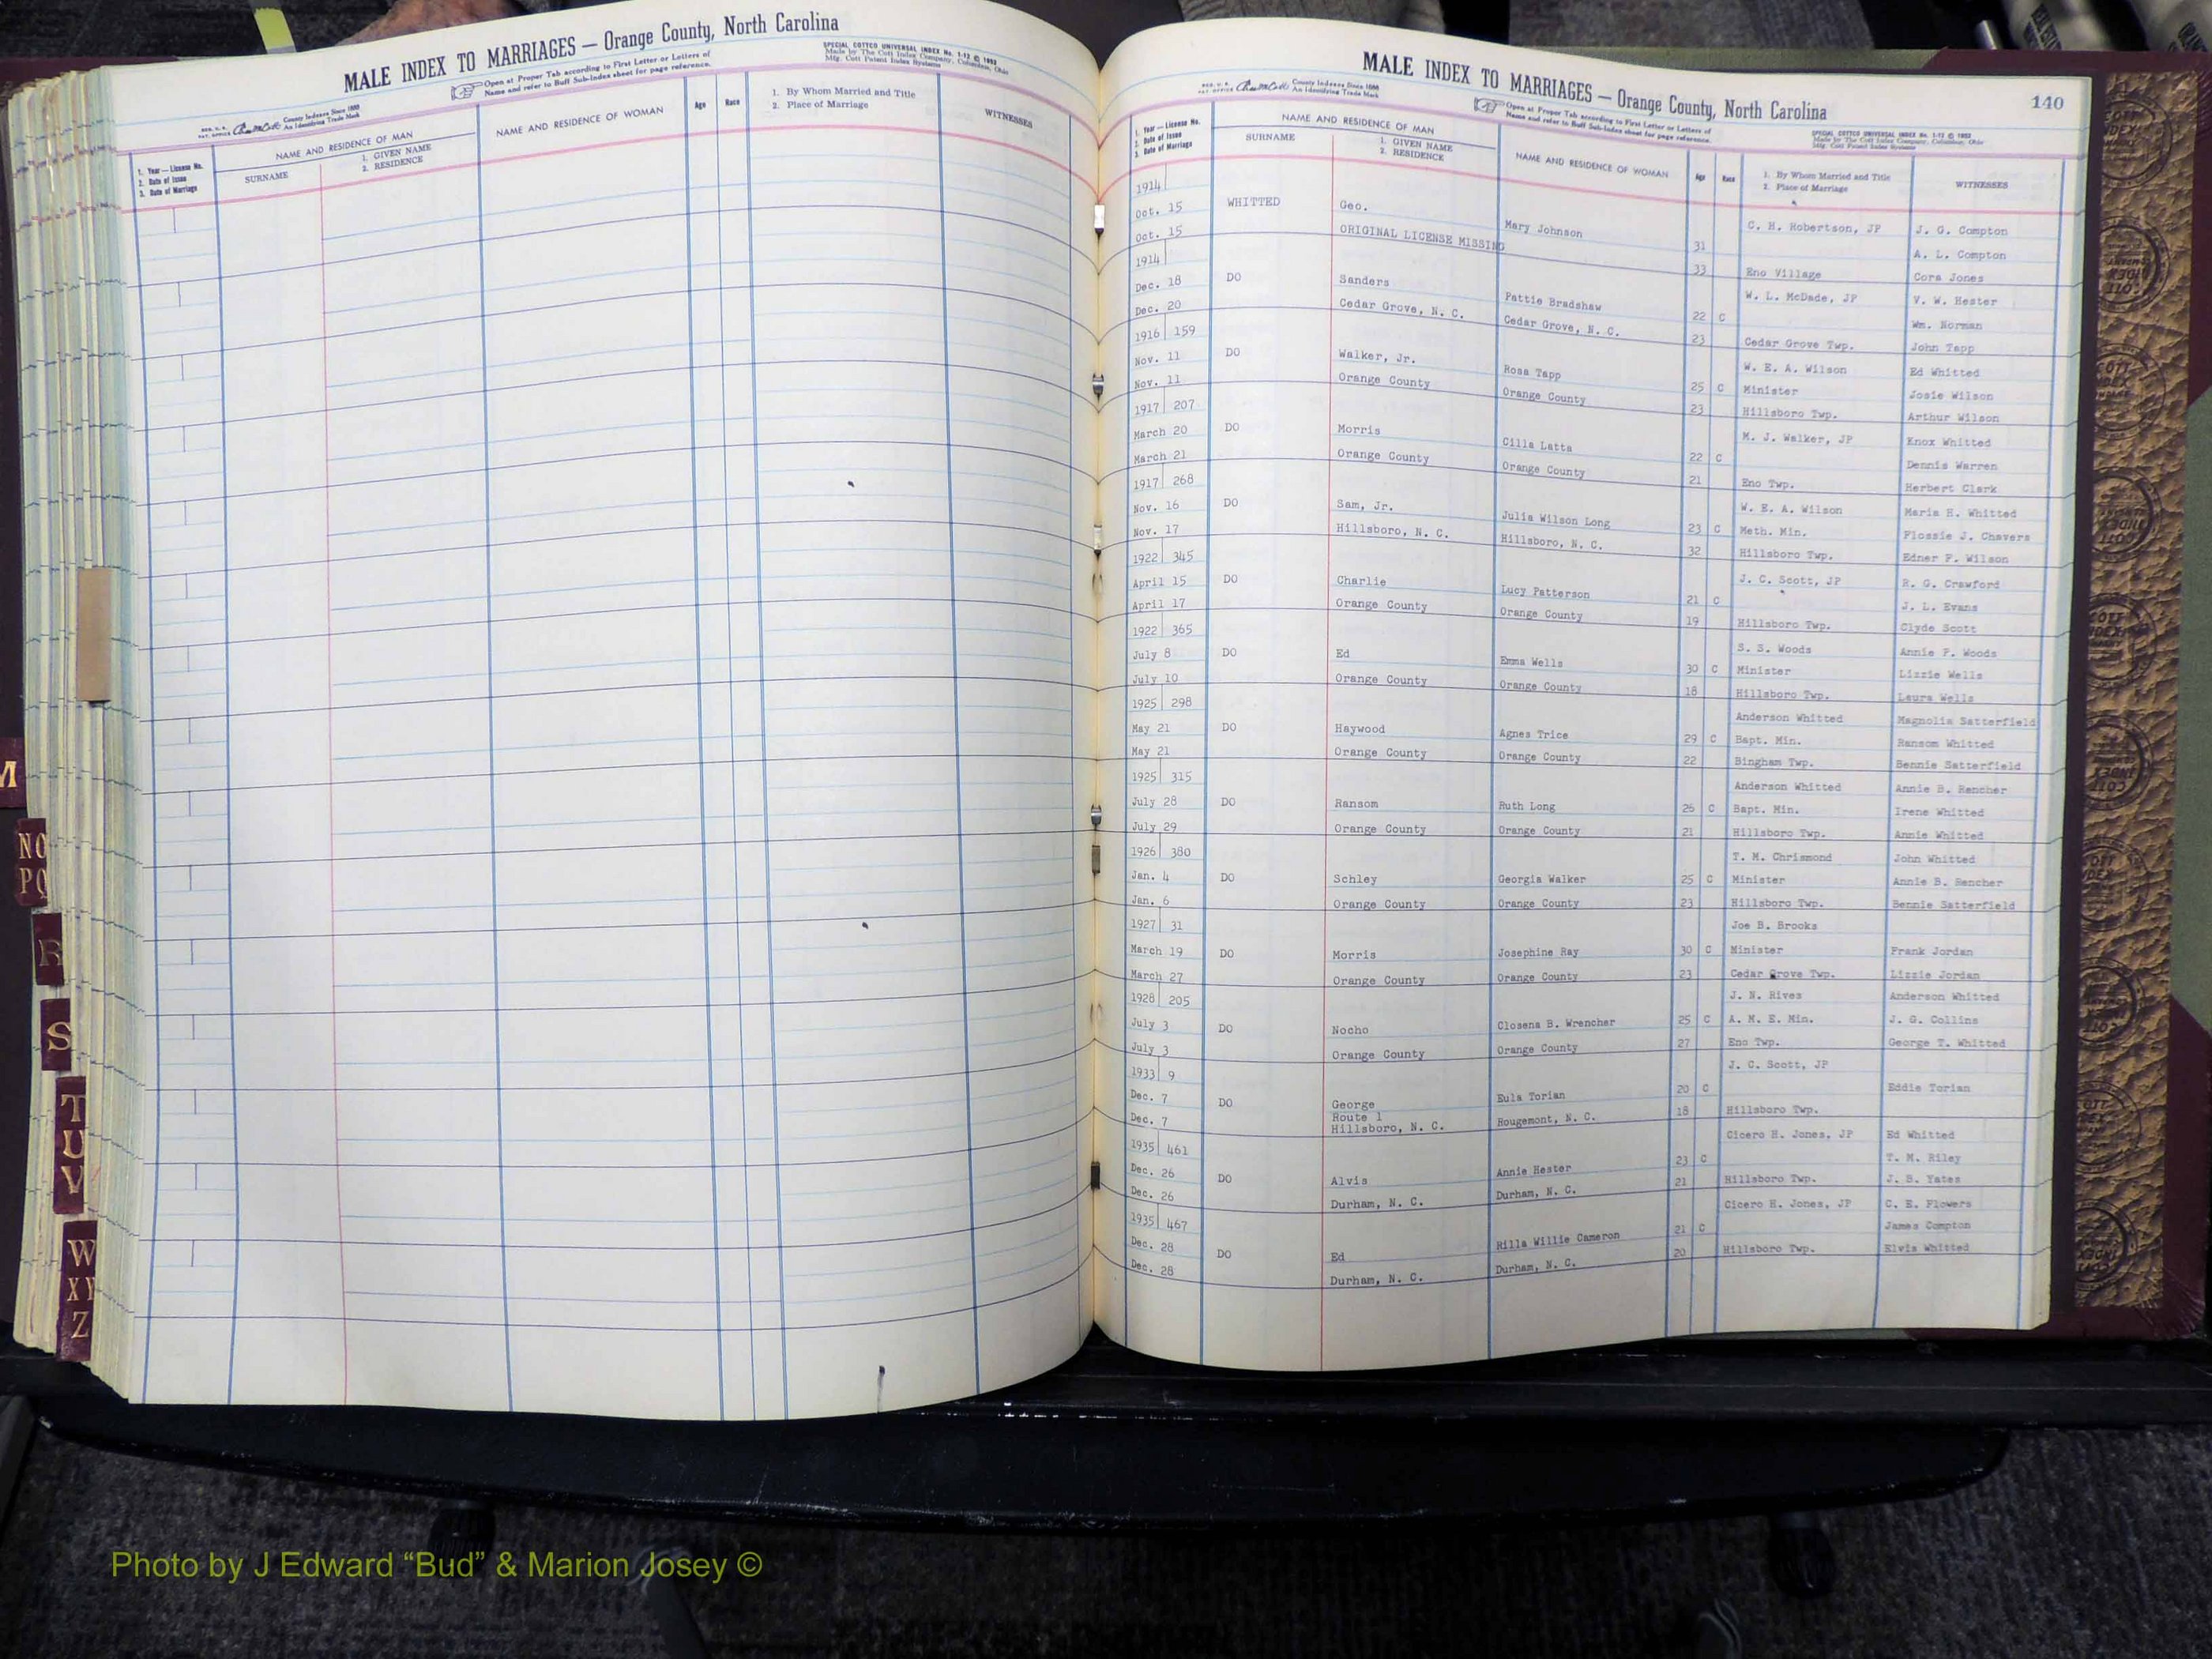 MALE INDEX TO MARRIAGES — Orange County, North Carolina
Open at Proper Tab according to First Letter or Letters of
Name and refer to Buff Sub-Index sheet for page reference.
SPECIAL COTTCO UNIVERSAL INDEX No. 1-12 © 1952
Made by The Cott Index Company, Columbus, Ohio
Mfg. Cott Patent Index Systems
County Indexes Since 1888
An Identifying Trade Mark
1. Year — License No.
2. Date of Issue
3. Date of Marriage
NAME AND RESIDENCE OF MAN
SURNAME
1. GIVEN NAME
2. RESIDENCE
NAME AND RESIDENCE OF WOMAN
Age
Race
1. By Whom Married and Title
2. Place of Marriage
WITNESSES
M
NO
PQ
R
S
T
U
V
W
XY
Z
MALE INDEX TO MARRIAGES — Orange County, North Carolina
140
County Indexes Since 1888
An Identifying Trade Mark
Open at Proper Tab according to First Letter or Letters of
Name and refer to Buff Sub-Index sheet for page reference.
SPECIAL COTTCO UNIVERSAL INDEX No. 1-12 © 1952
Made by The Cott Index Company, Columbus, Ohio
Mfg. Cott Patent Index Systems
1. Year — License No.
2. Date of Issue
3. Date of Marriage
NAME AND RESIDENCE OF MAN
SURNAME
1. GIVEN NAME
2. RESIDENCE
NAME AND RESIDENCE OF WOMAN
Age
Race
1. By Whom Married and Title
2. Place of Marriage
WITNESSES
1914 C. H. Robertson, JP J. G. Compton
Oct. 15 WHITTED Geo. Mary Johnson 31 A. L. Compton
Oct. 15 ORIGINAL LICENSE MISSING 33 Eno Village Cora Jones
1914 W. L. McDade, JP V. W. Hester
Dec. 18 DO Sanders Pattie Bradshaw 22 C Wm. Norman
Dec. 20 Cedar Grove, N. C. Cedar Grove, N. C. 23 Cedar Grove Twp. John Tapp
1916 159 W. E. A. Wilson Ed Whitted
Nov. 11 DO Walker, Jr. Rosa Tapp 25 C Minister Josie Wilson
Nov. 11 Orange County Orange County 23 Hillsboro Twp. Arthur Wilson
1917 207 M. J. Walker, JP Knox Whitted
March 20 DO Morris Cilla Latta 22 C Dennis Warren
March 21 Orange County Orange County 21 Eno Twp. Herbert Clark
1917 268 W. E. A. Wilson Maria H. Whitted
Nov. 16 DO Sam, Jr. Julia Wilson Long 23 C Meth. Min. Flossie J. Chavers
Nov. 17 Hillsboro, N. C. Hillsboro, N. C. 32 Hillsboro Twp. Edner F. Wilson
1922 345 J. C. Scott, JP R. G. Crawford
April 15 DO Charlie Lucy Patterson 21 C J. L. Evans
April 17 Orange County Orange County 19 Hillsboro Twp. Clyde Scott
1922 365 S. S. Woods Annie P. Woods
July 8 DO Ed Emma Wells 30 C Minister Lizzie Wells
July 10 Orange County Orange County 18 Hillsboro Twp. Laura Wells
1925 298 Anderson Whitted Magnolia Satterfield
May 21 DO Haywood Agnes Trice 29 C Bapt. Min. Ransom Whitted
May 21 Orange County Orange County 22 Bingham Twp. Bennie Satterfield
1925 315 Anderson Whitted Annie B. Rencher
July 28 DO Ransom Ruth Long 26 C Bapt. Min. Irene Whitted
July 29 Orange County Orange County 21 Hillsboro Twp. Annie Whitted
1926 380 T. M. Chrismond John Whitted
Jan. 4 DO Schley Georgia Walker 25 C Minister Annie B. Rencher
Jan. 6 Orange County Orange County 23 Hillsboro Twp. Bennie Satterfield
1927 31 Joe B. Brooks
March 19 DO Morris Josephine Ray 30 C Minister Frank Jordan
March 27 Orange County Orange County 23 Cedar Grove Twp. Lizzie Jordan
1928 205 J. N. Rives Anderson Whitted
July 3 DO Nocho Closena B. Wrencher 25 C A. M. E. Min. J. G. Collins
July 3 Orange County Orange County 27 Eno Twp. George T. Whitted
1933 9 J. C. Scott, JP
Dec. 7 DO George Eula Torian 20 C Eddie Torian
Dec. 7 Route 1 Hillsboro, N. C. Rougemont, N. C. 18 Hillsboro Twp.
1935 461 Cicero H. Jones, JP Ed Whitted
Dec. 26 DO Alvis Annie Hester 23 C T. M. Riley
Dec. 26 Durham, N. C. Durham, N. C. 21 Hillsboro Twp. J. B. Yates
1935 467 Cicero H. Jones, JP C. E. Flowers
Dec. 28 DO Ed Rilla Willie Cameron 21 C James Compton
Dec. 28 Durham, N. C. Durham, N. C. 20 Hillsboro Twp. Elvis Whitted
Photo by J Edward “Bud” & Marion Josey ©